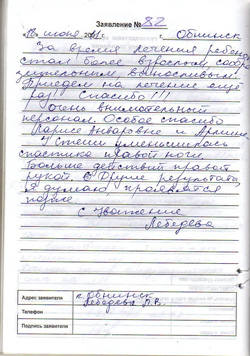 Заявление № 82
18 июня 2011 г. г. Обнинск
За время лечения ребенок
стал более взрослым, само
стоятельным, выносливым.
Приедем на лечение ещё
раз! Спасибо!!!
Очень внимательный
персонал. Особое спасибо
Ларисе Анваровне и Армине
У Стеши уменьшилась
спастика правой ноги.
Больше действий правой
рукой. Другие результаты
я думаю проявятся
позже
С уважением
Лебедева
Адрес заявителя г. Обнинск
Лебедева Л.В.
Телефон
Подпись заявителя